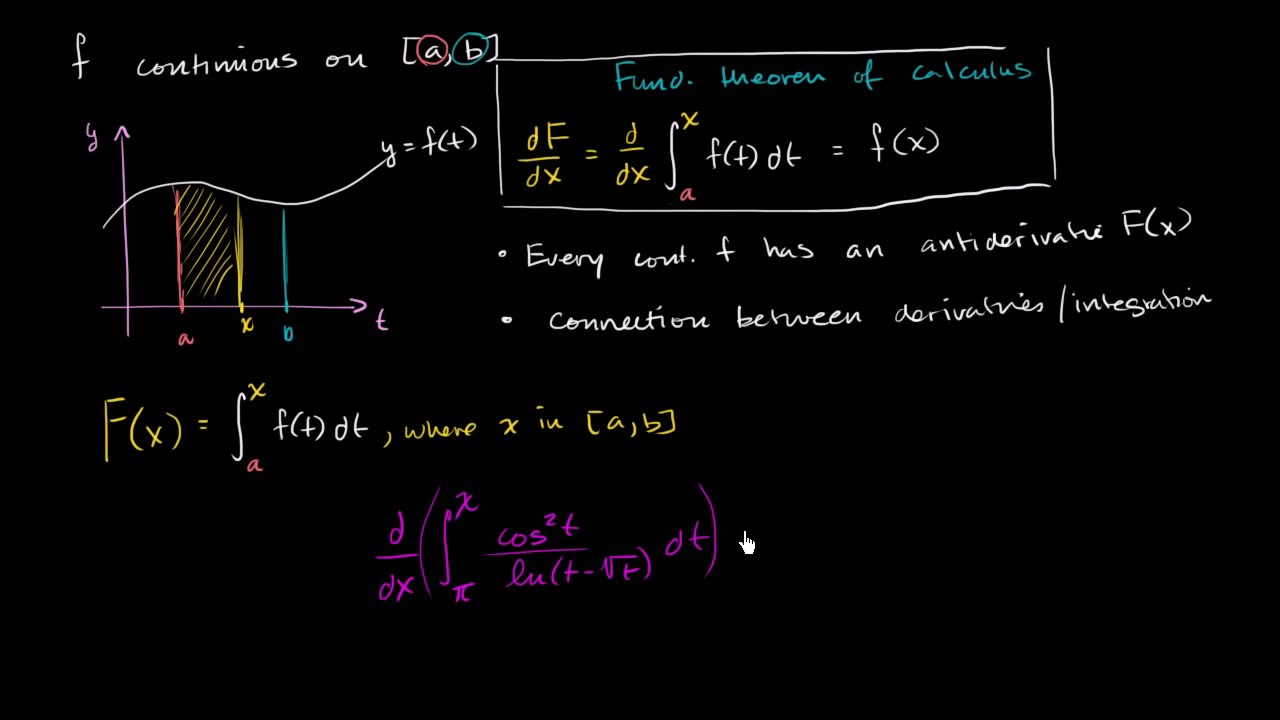 f continuous on [a, b]
Fund. theorem of calculus
dF/dx = d/dx ∫_a^x f(t) dt = f(x)
y
y = f(t)
a x b t
• Every cont. f has an antiderivative F(x)
• connection between derivatives/integration
F(x) = ∫_a^x f(t) dt, where x in [a,b]
d/dx ( ∫_π^x cos²t / ln(t-√t) dt )